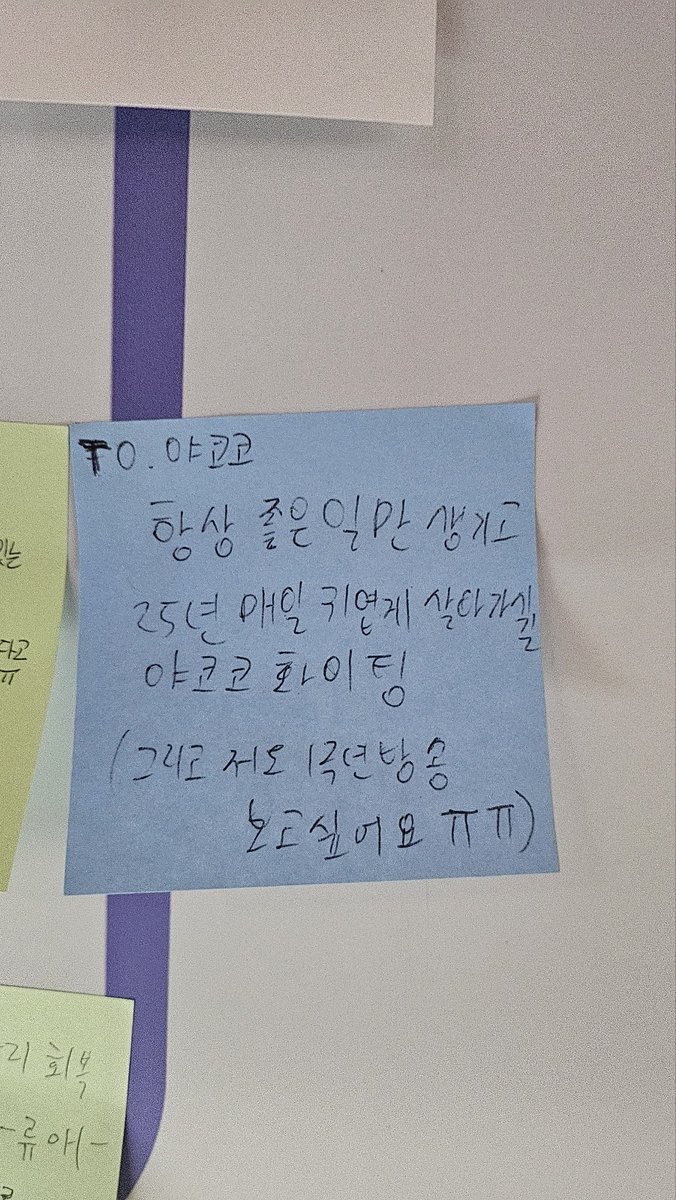 TO. 야코코
항상 좋은일만 생기고
25년 매일 귀엽게 살아가실
야코코 화이팅
(그리고 저도 1주년방송
보고싶어요 ㅠㅠ)
있는
다고
ㅠ
리 회복
류 아